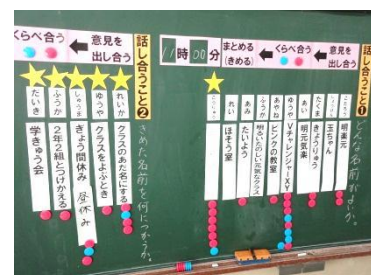 話し合うこと❶
どんな名前がよいか。
意見を
出し合う
くらべ合う
まとめる
(きめる)
11時00分
明楽元
玉ちゃん
たくま
きょうりゅう
あい
明元気楽
ゆうや
VチャレンジャーXY
あやね
ピンクの教室
ふうか
明るいたのしい元気なクラス
あみ
たいよう
れい
ほそう室
話し合うこと❷
きめた名前を何につかうか。
意見を
出し合う
くらべ合う
れいか
クラスのあた名にする
ゆうや
クラスをよぶとき
しゅうま
ぎょう間休み 昼休み
ふうか
2年2組とつけかえる
だいき
学きゅう会